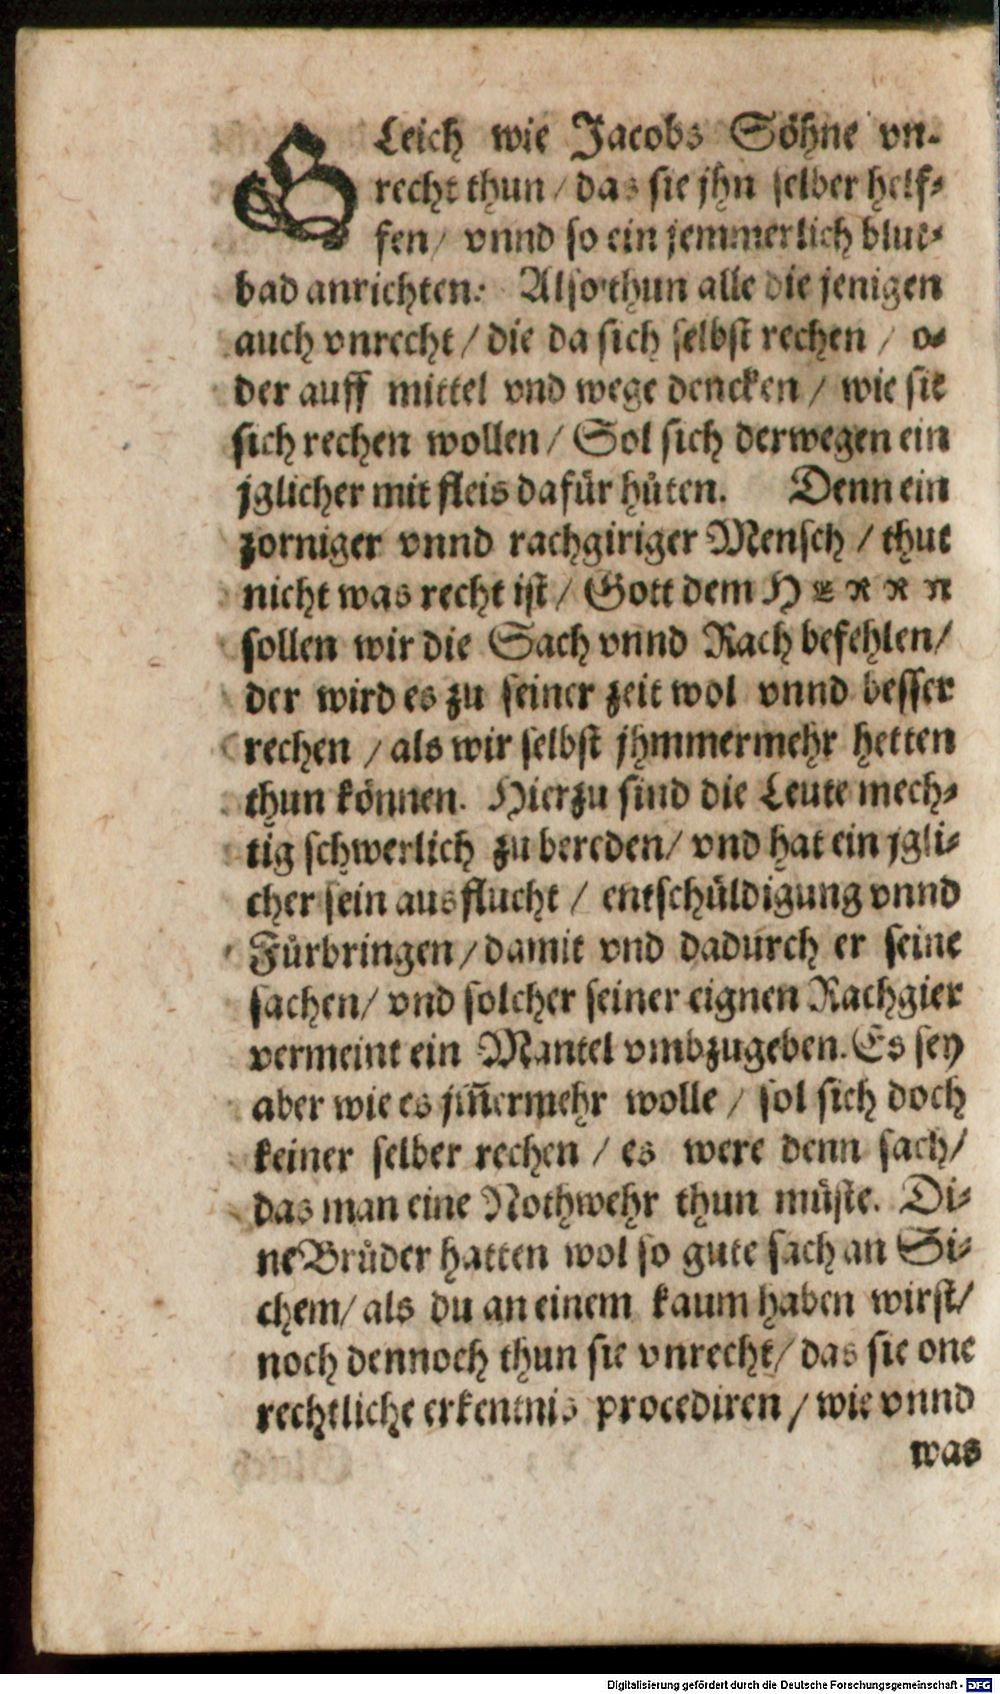 GLeich wie Jacobs Söhne vn-
recht thun / das sie jhn selber helf-
fen / vnnd so ein jemmerlich blut-
bad anrichten: Also thun alle die jenigen
auch vnrecht / die da sich selbst rechen / o-
der auff mittel vnd wege dencken / wie sie
sich rechen wollen / Sol sich derwegen ein
jglicher mit fleis dafür hüten. Denn ein
zorniger vnnd rachgiriger Mensch / thut
nicht was recht ist / Gott dem HERRN
sollen wir die Sach vnnd Rach befehlen /
der wird es zu seiner zeit wol vnnd besser
rechen / als wir selbst jhmmermehr hetten
thun können. Hierzu sind die Leute mech-
tig schwerlich zu bereden / vnd hat ein jgli-
cher sein ausflucht / entschüldigung vnnd
Fürbringen / damit vnd dadurch er seine
sachen / vnd solcher seiner eignen Rachgier
vermeint ein Mantel vmbzugeben. Es sey
aber wie es jm̃ermehr wolle / sol sich doch
keiner selber rechen / es were denn sach /
das man eine Nothwehr thun müste. Di-
ne Brüder hatten wol so gute sach an Si-
chem / als du an einem kaum haben wirst /
noch dennoch thun sie vnrecht / das sie one
rechtliche erkentnis procediren / wie vnnd
was
Digitalisierung gefördert durch die Deutsche Forschungsgemeinschaft - DFG